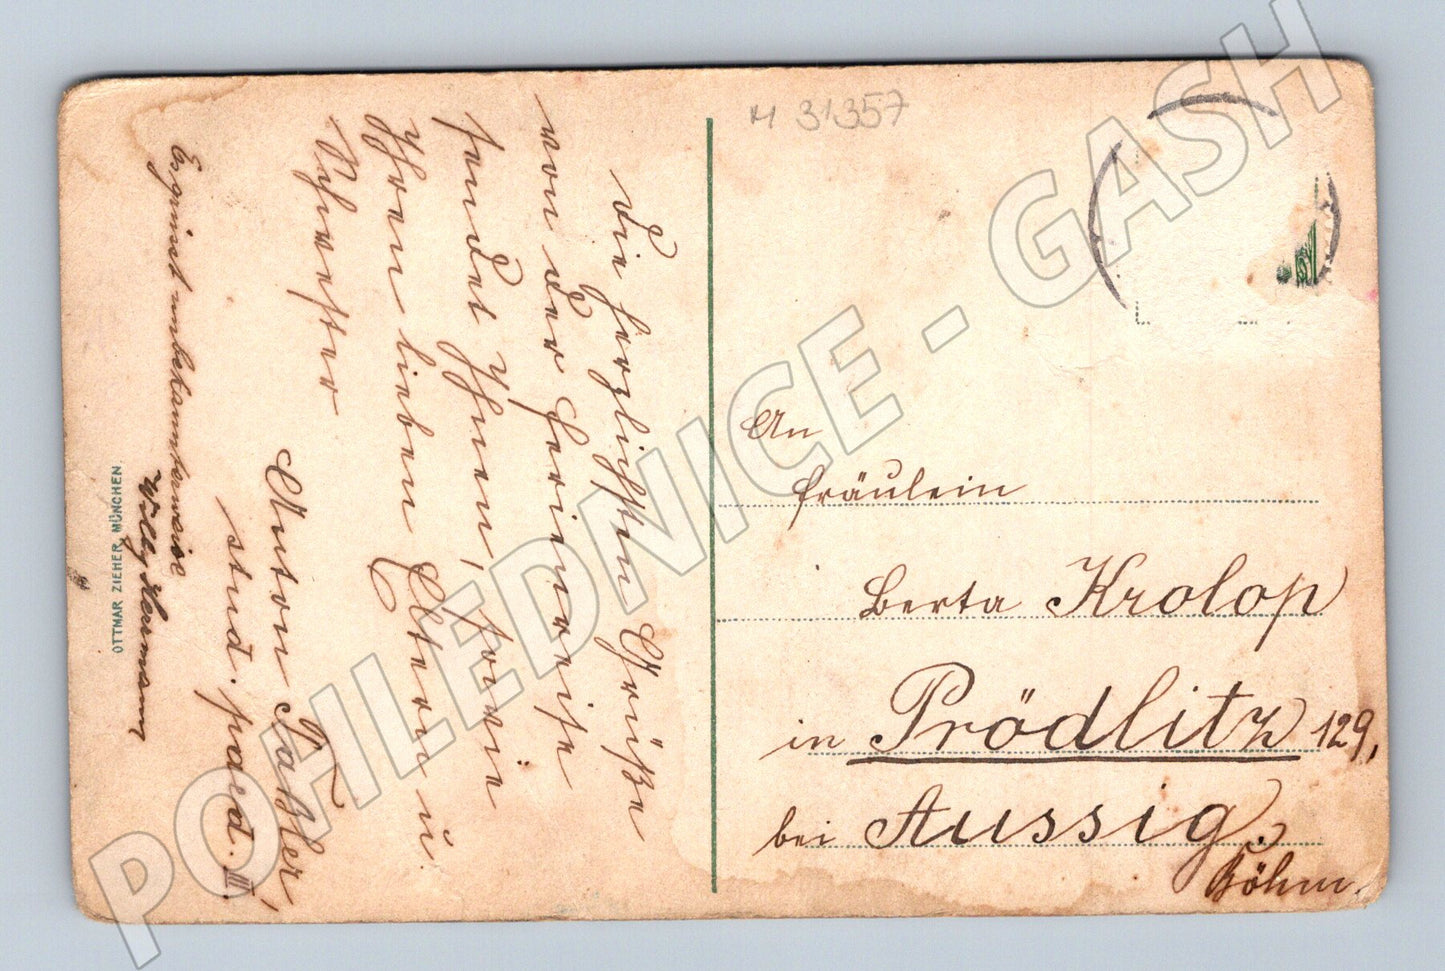 Die herzlichsten Grüße
von der Ferienreise
sendet Ihnen, sowie
Ihren lieben Eltern u.
Schwester
Anton Taßler,
stud. paed. III
Es grüsst unbekannterweise
Willy Hermann
OTTMAR ZIEHER, MÜNCHEN.
M 31357
An
Fräulein
Berta Krolop
in Prödlitz 129,
bei Aussig.
Böhm.
POHLEDNICE - GASH